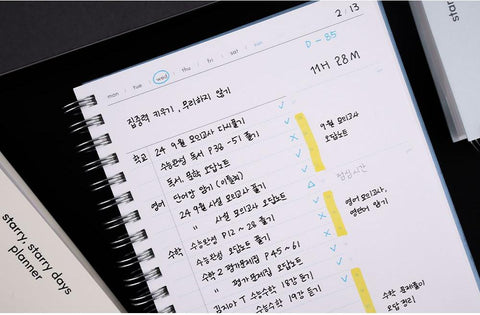 2 / 13
mon / tue / wed / thu / fri / sat / sun
D - 85
11H 28M
집중력 키우기, 무리하지 않기
국어 24 9월 모의고사 다시풀기 ✓
수능완성 독서 P38 - 51 풀기 ✕
독서, 문학 오답노트 ✓
영어 단어장 암기 (이틀치) ✓
24 9월 사설 모의고사 풀기 ✓
" 사설 모의고사 오답노트 △
수학 수능완성 P12 ~ 28 풀기 ✕
수능완성 오답노트 풀기 ✓
수학2 평가문제집 P45 ~ 61 ✕
" 평가문제집 오답노트 ✓
T 수능수학 18강 듣기 ✓
수능수학 19강 듣기
9월 모의고사
오답노트
점심시간
영어 모의고사,
영단어 암기
수학 문제풀이
오답 정리
starry, starry days
planner
starr